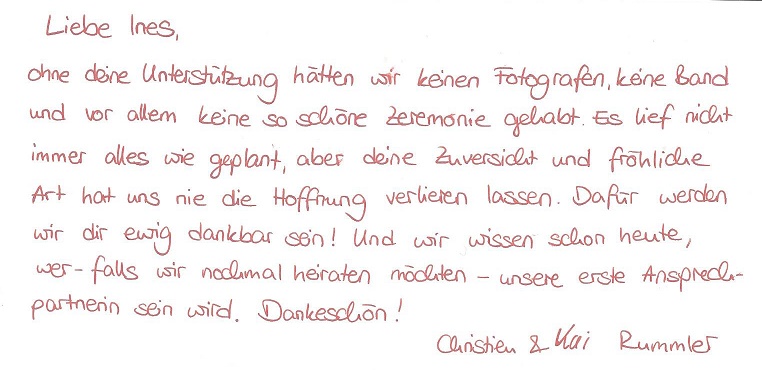 Liebe Ines,
ohne deine Unterstützung hätten wir keinen Fotografen, keine Band
und vor allem keine so schöne Zeremonie gehabt. Es lief nicht
immer alles wie geplant, aber deine Zuversicht und fröhliche
Art hat uns nie die Hoffnung verlieren lassen. Dafür werden
wir dir ewig dankbar sein! Und wir wissen schon heute,
wer - falls wir nochmal heiraten möchten - unsere erste Ansprech-
partnerin sein wird. Dankeschön!
Christien & Kai Rummler